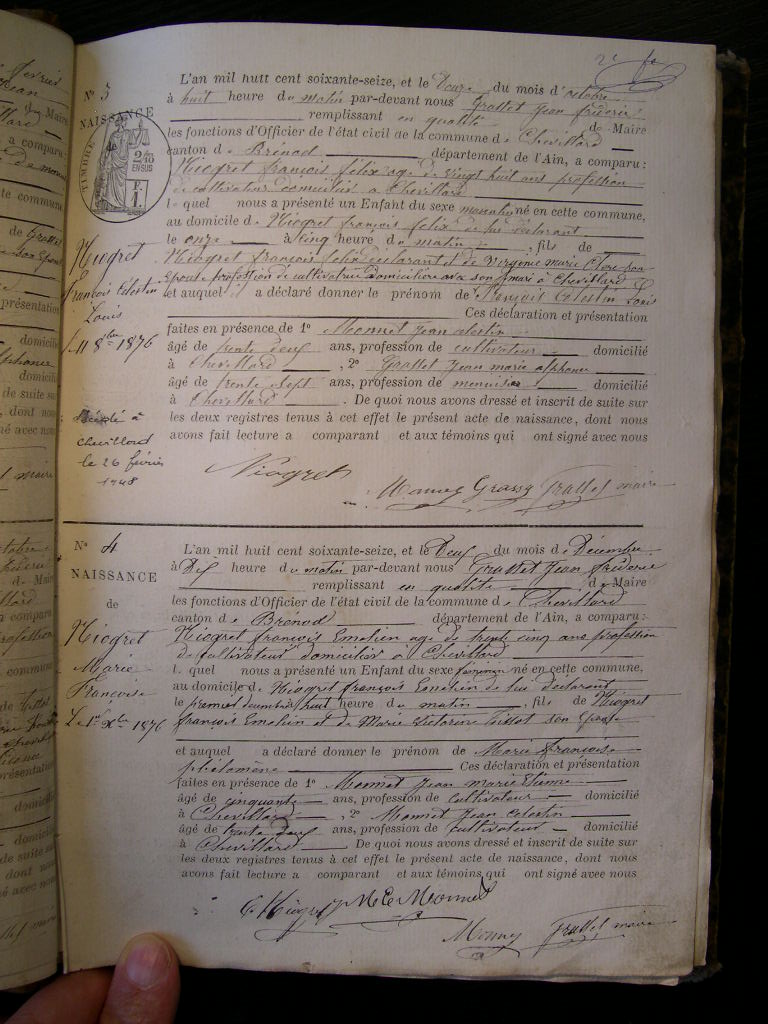 N° 3
NAISSANCE
de
TIMBRE
2/10
EN SUS
F.
1.
Niogret
François Célestin
Louis
11 8bre 1876
Décédé à
Chevillard
le 26 février
1948
L'an mil huit cent soixante-seize, et le Douze du mois d'octobre
à huit heure du matin par-devant nous Grasset Jean fréderic
remplissant en qualité de Maire
les fonctions d'Officier de l'état civil de la commune de Chevillard
canton de Brénod département de l'Ain, a comparu :
Niogret françois félix age de vingt huit ans profession
de cultivateur domicilié a Chevillard
lequel nous a présenté un Enfant du sexe masculin né en cette commune,
au domicile de Niogret françois felix de lui déclarant
le onze à cinq heure du matin, fils de
Niogret françois felix declarant et de Virginie marie son
Epouse profession de cultivatrice domiciliée avec son mari à Chevillard
et auquel il a déclaré donner le prénom de François Celestin Louis
Ces déclaration et présentation
faites en présence de 1° Monnet Jean celestin
âgé de trente deux ans, profession de cultivateur domicilié
à Chevillard, 2° Grasset Jean marie alphonse
âgé de trente sept ans, profession de menuisier domicilié
à Chevillard. De quoi nous avons dressé et inscrit de suite sur
les deux registres tenus à cet effet le présent acte de naissance, dont nous
avons fait lecture a comparant et aux témoins qui ont signé avec nous
Niogret
Grasset maire
N° 4
NAISSANCE
de
Niogret
Marie
Françoise
Le 1er Xbre 1876
L'an mil huit cent soixante-seize, et le Deux du mois de Décembre
à Dix heure du matin par-devant nous Grasset Jean fréderic
remplissant en qualité de Maire
les fonctions d'Officier de l'état civil de la commune de Chevillard
canton de Brénod département de l'Ain, a comparu :
Niogret françois Emelien age de trente cinq ans profession
de Cultivateur domicilier a Chevillard
l quel nous a présenté un Enfant du sexe féminin né en cette commune,
au domicile de Niogret françois Emelien de lui déclarant
le premier decembre huit heure du matin, fils de Niogret
françois Emelien et de Marie Victorine Tissot son Epouse
et auquel a déclaré donner le prénom de Marie françoise
philomène Ces déclaration et présentation
faites en présence de 1° Monnet Jean marie Etienne
âgé de cinquante ans, profession de Cultivateur domicilié
à Chevillard, 2° Monnet Jean Celestin
âgé de trente deux ans, profession de cultivateur domicilié
à Chevillard. De quoi nous avons dressé et inscrit de suite sur
les deux registres tenus à cet effet le présent acte de naissance, dont nous
avons fait lecture a comparant et aux témoins qui ont signé avec nous
Monnet
Grasset maire